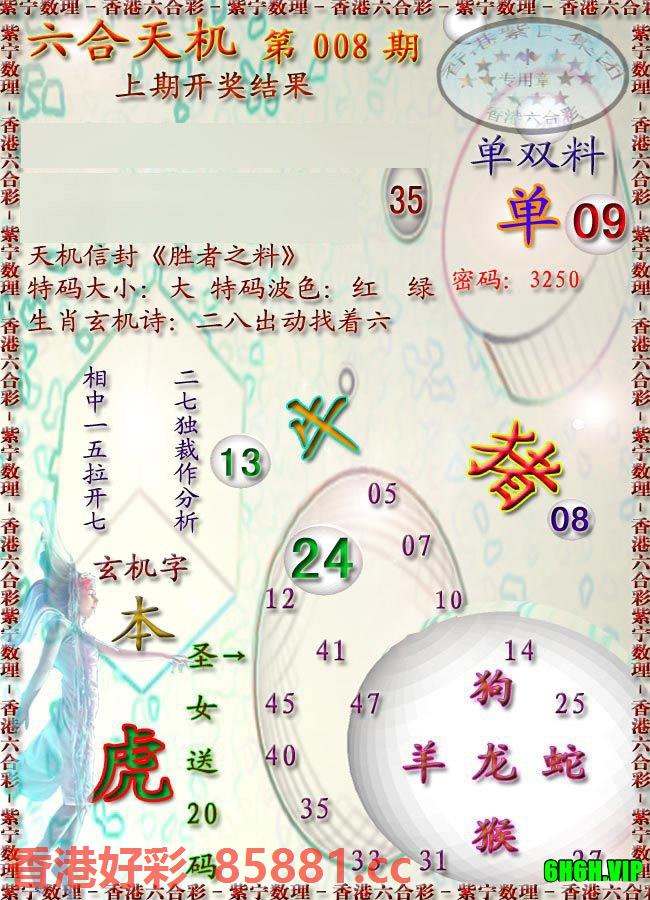 紫宁数理－香港六合彩－紫宁数理－香港六合彩－紫宁数理－香港六合彩－紫宁数理
六合天机 第 008 期
上期开奖结果
专用章
香港六合彩
单双料
单 09
35
天机信封《胜者之料》
特码大小：大 特码波色：红 绿
密码：3250
生肖玄机诗：二八出动找着六
二七独裁作分析
相中一五拉开七
13
猪
08
05
24
07
12
10
玄机字
本
圣女送20码
→
41
14
狗
45
47
25
虎
羊 龙 蛇
40
35
猴
33
31
27
香港好彩 85881.cc
6H6H.VIP
紫宁数理－香港六合彩－紫宁数理－香港六合彩－紫宁数理－香港六合彩－紫宁数理